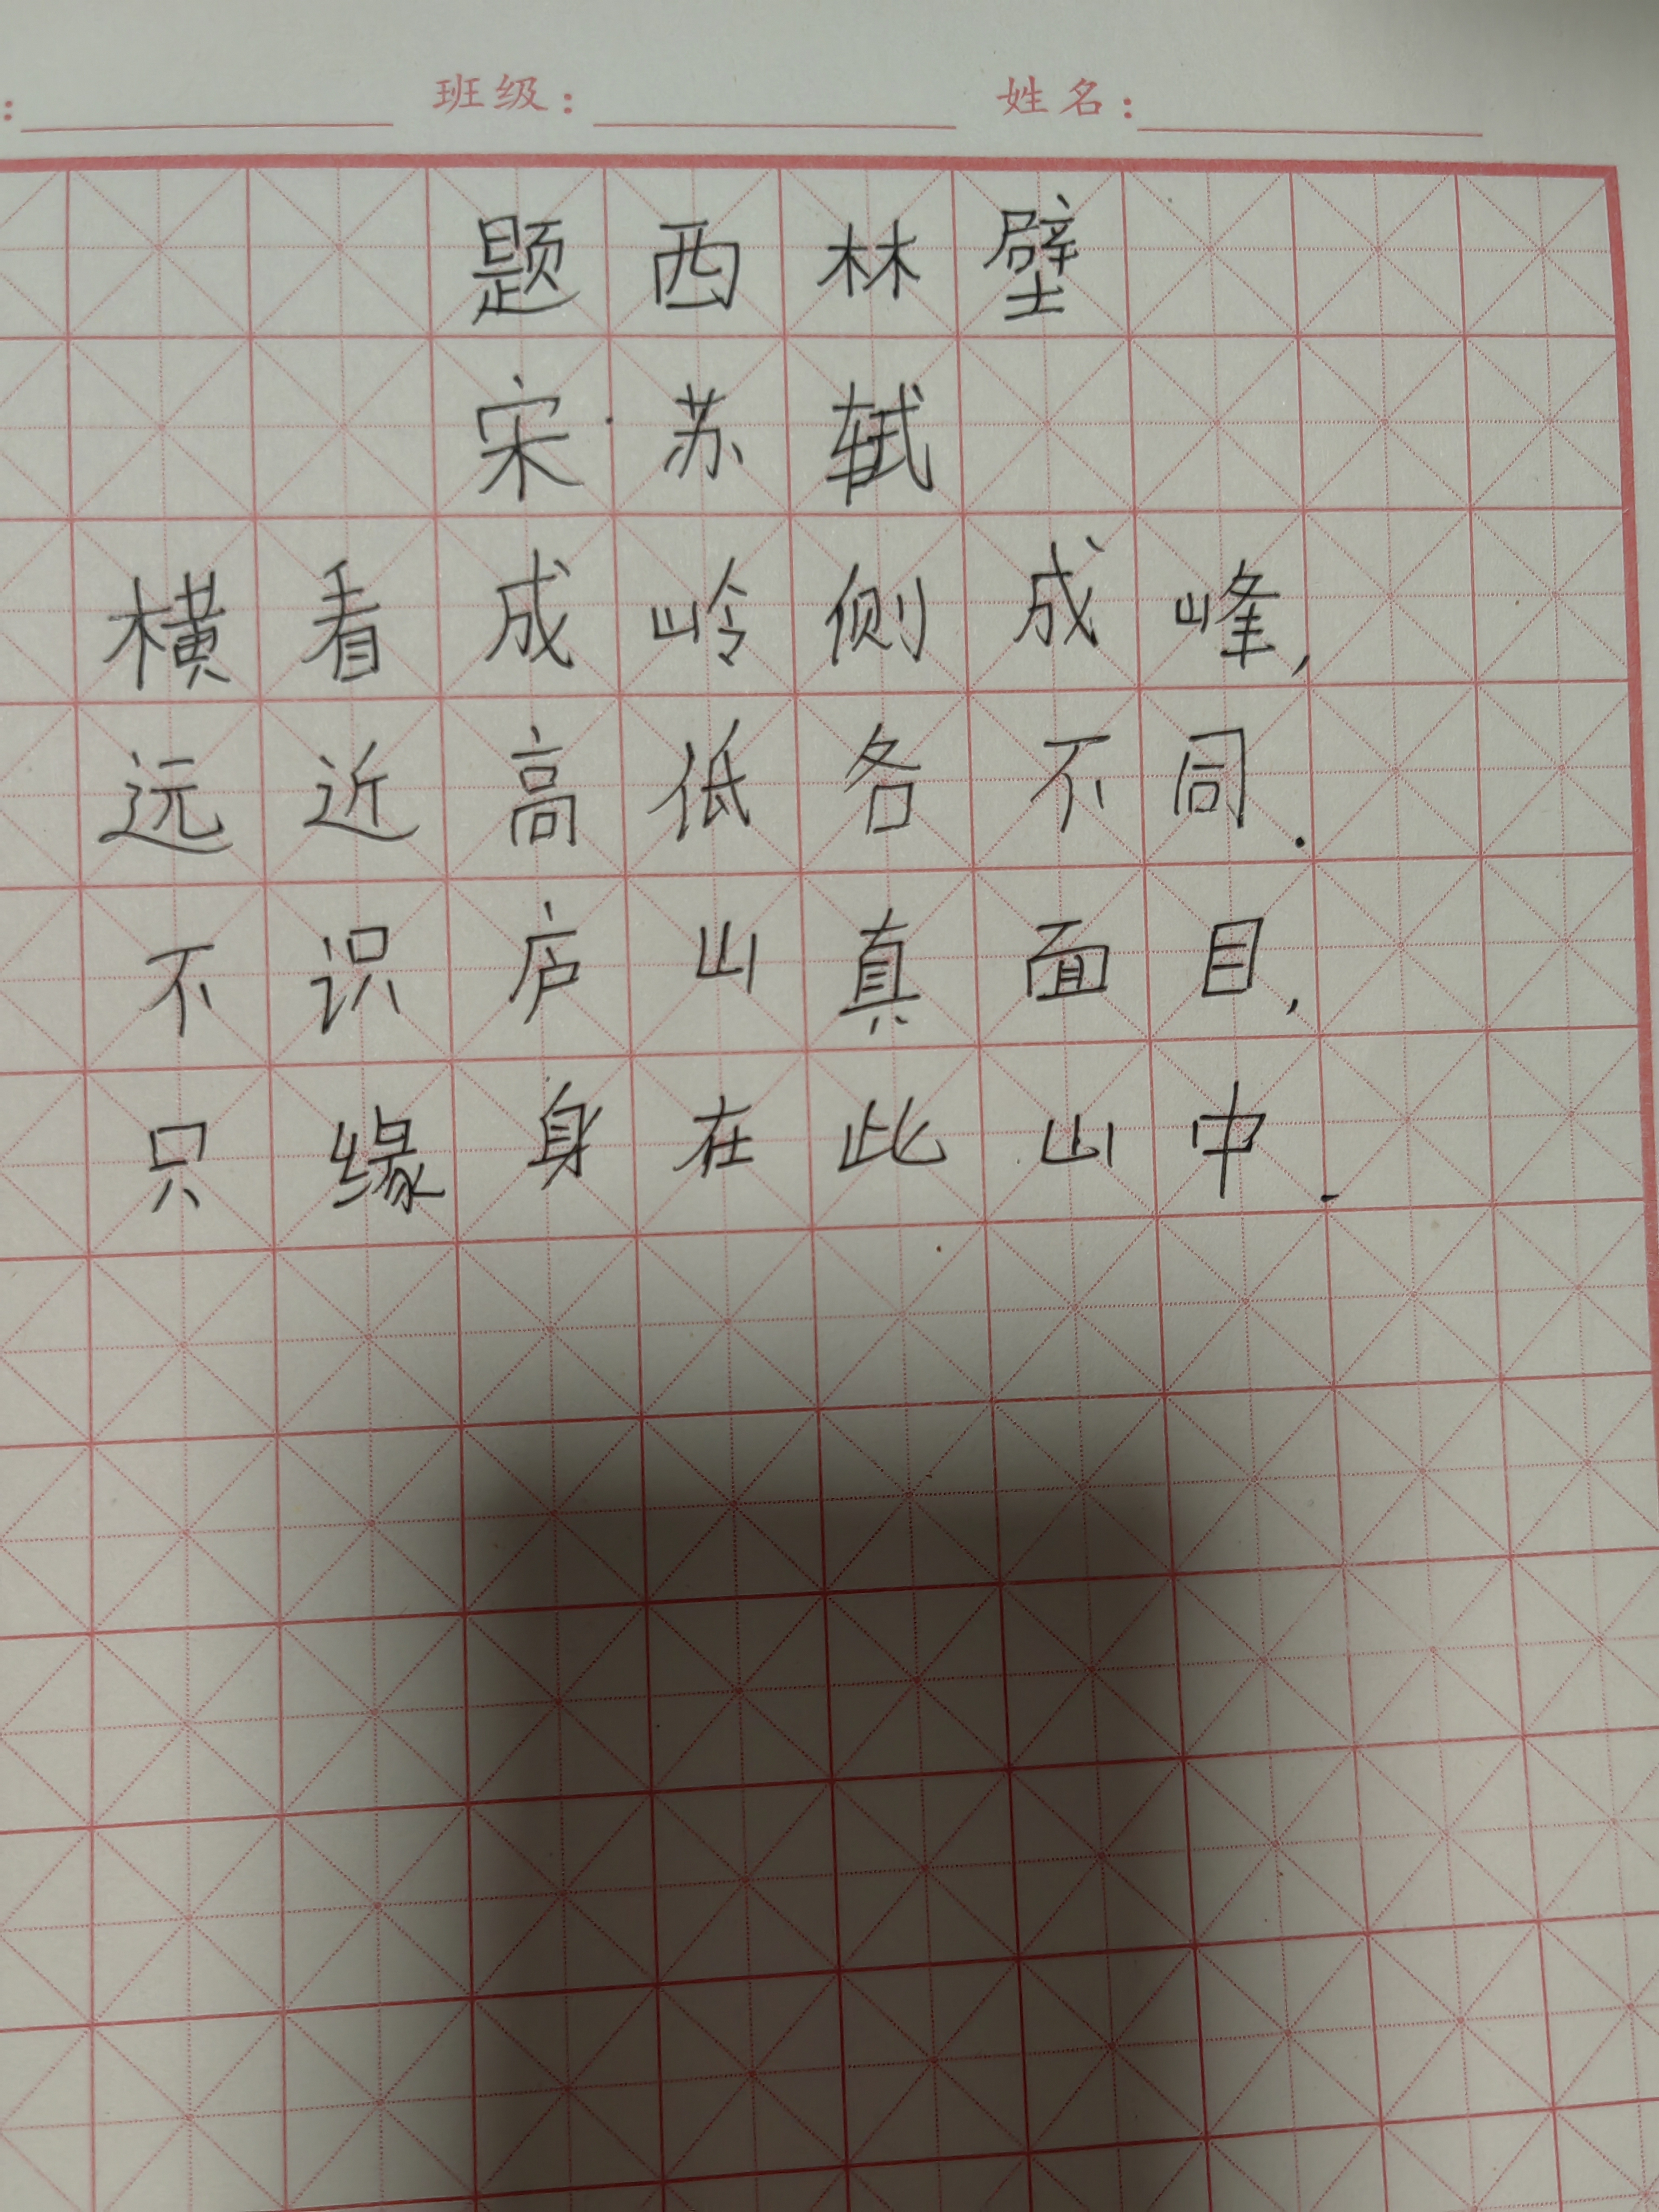 : 班级: 姓名:
题西林壁
宋·苏轼
横看成岭侧成峰,
远近高低各不同.
不识庐山真面目,
只缘身在此山中.